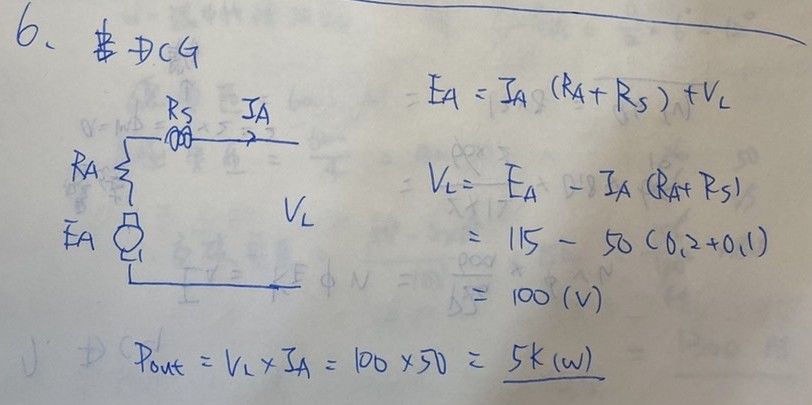 6. DCG
RS IA
RA
EA
VL
EA = IA (RA + RS) + VL
VL = EA - IA (RA + RS)
= 115 - 50 (0.2+0.1)
= 100 (V)
Pout = VL × IA = 100 × 50 = 5k (w)